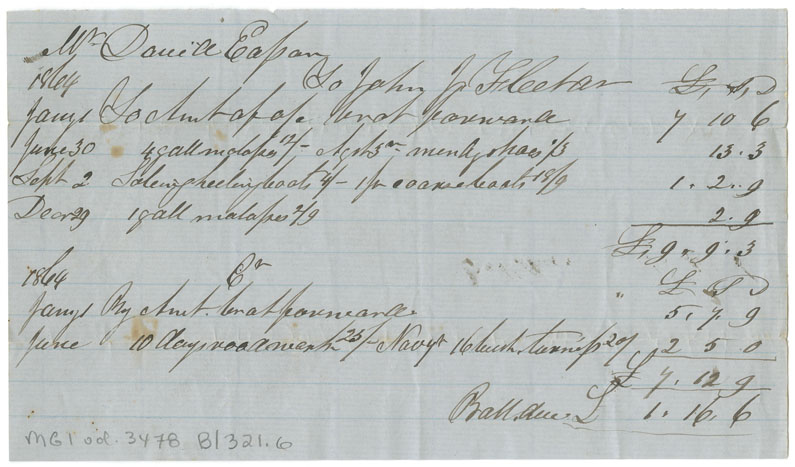 Mr. David Eason
1864 To John J. Fleeter £, S, D
Jany 1 To Amt of a/c brot forward 7 10 6
June 30 4 gall molases 12/- mendg shoes 1/3 13.3
Sept 2 Soleing heeling boots 4/- 1 pr coarse boots 18/9 1.2.9
Decr 29 1 gall molases 2/9 2.9
£, 9,, 9.3
1864 Cr £ S D
Jany 1 By Amt. brot forward " 5.7.9
June 10 days roadwork 25/- Novr 16 bush. turnips 20/ 2 5 0
£ 7.12 9
Ball. due £ 1.16.6
MG1 vol. 3478 B/321.6